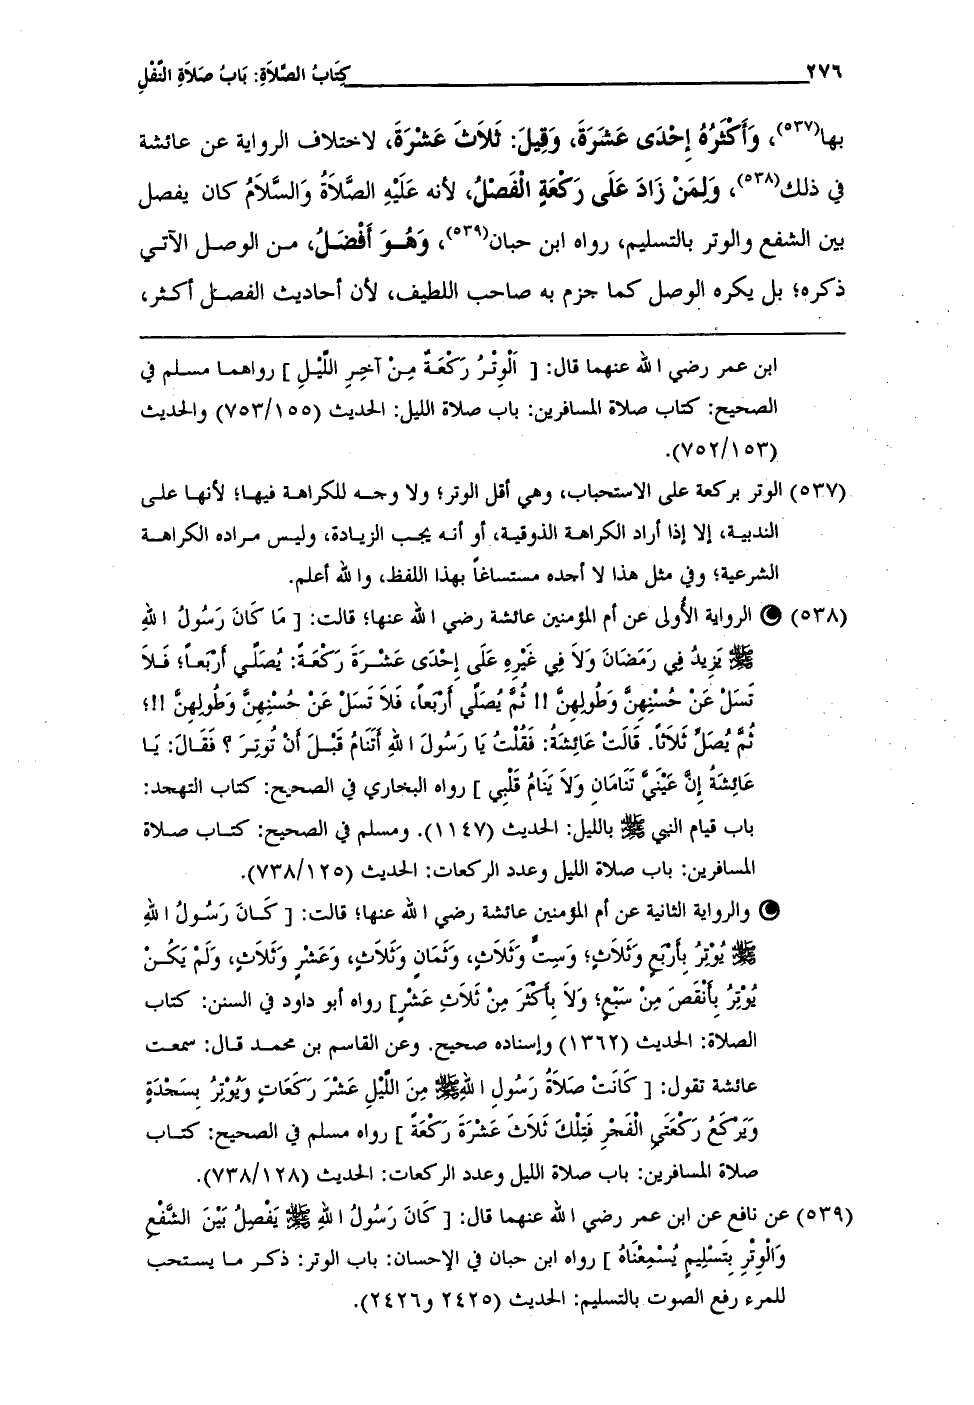 ٢٧٦ كِتَابُ الصَّلاَةِ: بَابُ صَلاَةِ النَّفْلِ
بها(٥٣٧)، وَأَكْثَرُهُ إِحْدَى عَشَرَةَ، وَقِيلَ: ثَلاَثَ عَشْرَةَ، لاختلاف الرواية عن عائشة
في ذلك(٥٣٨)، وَلِمَنْ زَادَ عَلَى رَكْعَةٍ الْفَصْلُ، لأنه عَلَيْهِ الصَّلاَةُ وَالسَّلاَمُ كان يفصل
بين الشفع والوتر بالتسليم، رواه ابن حبان(٥٣٩)، وَهُوَ أَفْضَلُ، من الوصل الآتي
ذكره؛ بل يكره الوصل كما جزم به صاحب اللطيف، لأن أحاديث الفصل أكثر،
ابن عمر رضي الله عنهما قال: [ اَلْوِتْرُ رَكْعَةٌ مِنْ آخِرِ اللَّيْلِ ] رواهما مسلم في
الصحيح: كتاب صلاة المسافرين: باب صلاة الليل: الحديث (٧٥٣/١٥٥) والحديث
(٧٥٢/١٥٣).
(٥٣٧) الوتر بركعة على الاستحباب، وهي أقل الوتر؛ ولا وجه للكراهة فيها؛ لأنها على
الندبية، إلا إذا أراد الكراهة الذوقية، أو أنه يجب الزيادة، وليس مراده الكراهة
الشرعية؛ وفي مثل هذا لا أجده مستساغاً بهذا اللفظ، والله أعلم.
(٥٣٨) الرواية الأُولى عن أم المؤمنين عائشة رضي الله عنها؛ قالت: [ مَا كَانَ رَسُولُ اللهِ
ﷺ يَزِيدُ فِي رَمَضَانَ وَلاَ فِي غَيْرِهِ عَلَى إِحْدَى عَشْرَةَ رَكْعَةً: يُصَلِّي أَرْبَعاً؛ فَلاَ
تَسَلْ عَنْ حُسْنِهِنَّ وَطُولِهِنَّ !! ثُمَّ يُصَلِّي أَرْبَعاً، فَلاَ تَسَلْ عَنْ حُسْنِهِنَّ وَطُولِهِنَّ !!؛
ثُمَّ يُصَلِّ ثَلاَثاً. قَالَتْ عَائِشَةُ: فَقُلْتُ يَا رَسُولَ اللهِ أَتَنَامُ قَبْلَ أَنْ تُوتِرَ ؟ فَقَالَ: يَا
عَائِشَةُ إِنَّ عَيْنَيَّ تَنَامَانِ وَلاَ يَنَامُ قَلْبِي ] رواه البخاري في الصحيح: كتاب التهجد:
باب قيام النبي ﷺ بالليل: الحديث (١١٤٧). ومسلم في الصحيح: كتاب صلاة
المسافرين: باب صلاة الليل وعدد الركعات: الحديث (٧٣٨/١٢٥).
والرواية الثانية عن أم المؤمنين عائشة رضي الله عنها؛ قالت: [ كَانَ رَسُولُ اللهِ
ﷺ يُوْتِرُ بِأَرْبَعٍ وَثَلاَثٍ؛ وَسِتٍّ وَثَلاَثٍ، وَثَمَانٍ وَثَلاَثٍ، وَعَشْرٍ وَثَلاَثٍ، وَلَمْ يَكُنْ
يُوْتِرُ بِأَنْقَصَ مِنْ سَبْعٍ؛ وَلاَ بِأَكْثَرَ مِنْ ثَلاَثِ عَشْرٍ] رواه أبو داود في السنن: كتاب
الصلاة: الحديث (١٣٦٢) وإسناده صحيح. وعن القاسم بن محمد قال: سمعت
عائشة تقول: [ كَانَتْ صَلاَةُ رَسُولِ اللهِ ﷺ مِنَ اللَّيْلِ عَشْرَ رَكَعَاتٍ وَيُوْتِرُ بِسَجْدَةٍ
وَيَرْكَعُ رَكْعَتَيِ الْفَجْرِ فَتِلْكَ ثَلاَثَ عَشْرَةَ رَكْعَةً ] رواه مسلم في الصحيح: كتاب
صلاة المسافرين: باب صلاة الليل وعدد الركعات: الحديث (٧٣٨/١٢٨).
(٥٣٩) عن نافع عن ابن عمر رضي الله عنهما قال: [ كَانَ رَسُولُ اللهِ ﷺ يَفْصِلُ بَيْنَ الشَّفْعِ
وَالْوِتْرِ بِتَسْلِيمٍ يُسْمِعْنَاهُ ] رواه ابن حبان في الإحسان: باب الوتر: ذكر ما يستحب
للمرء رفع الصوت بالتسليم: الحديث (٢٤٢٥ و٢٤٢٦).